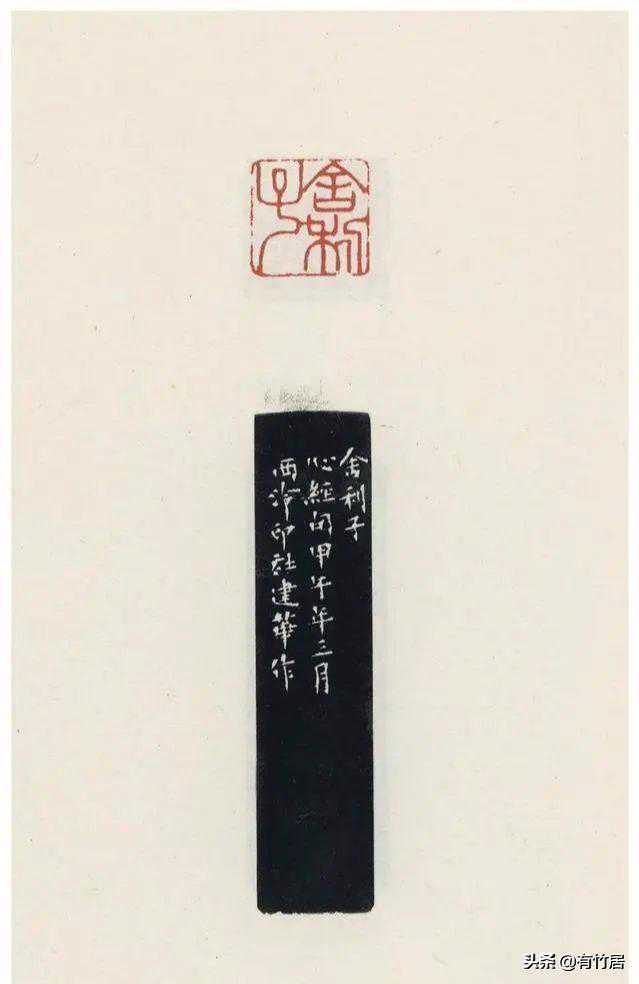 舍利
子
舍利子
心經甲午年三月
西泠印社建華作
头条 @有竹居